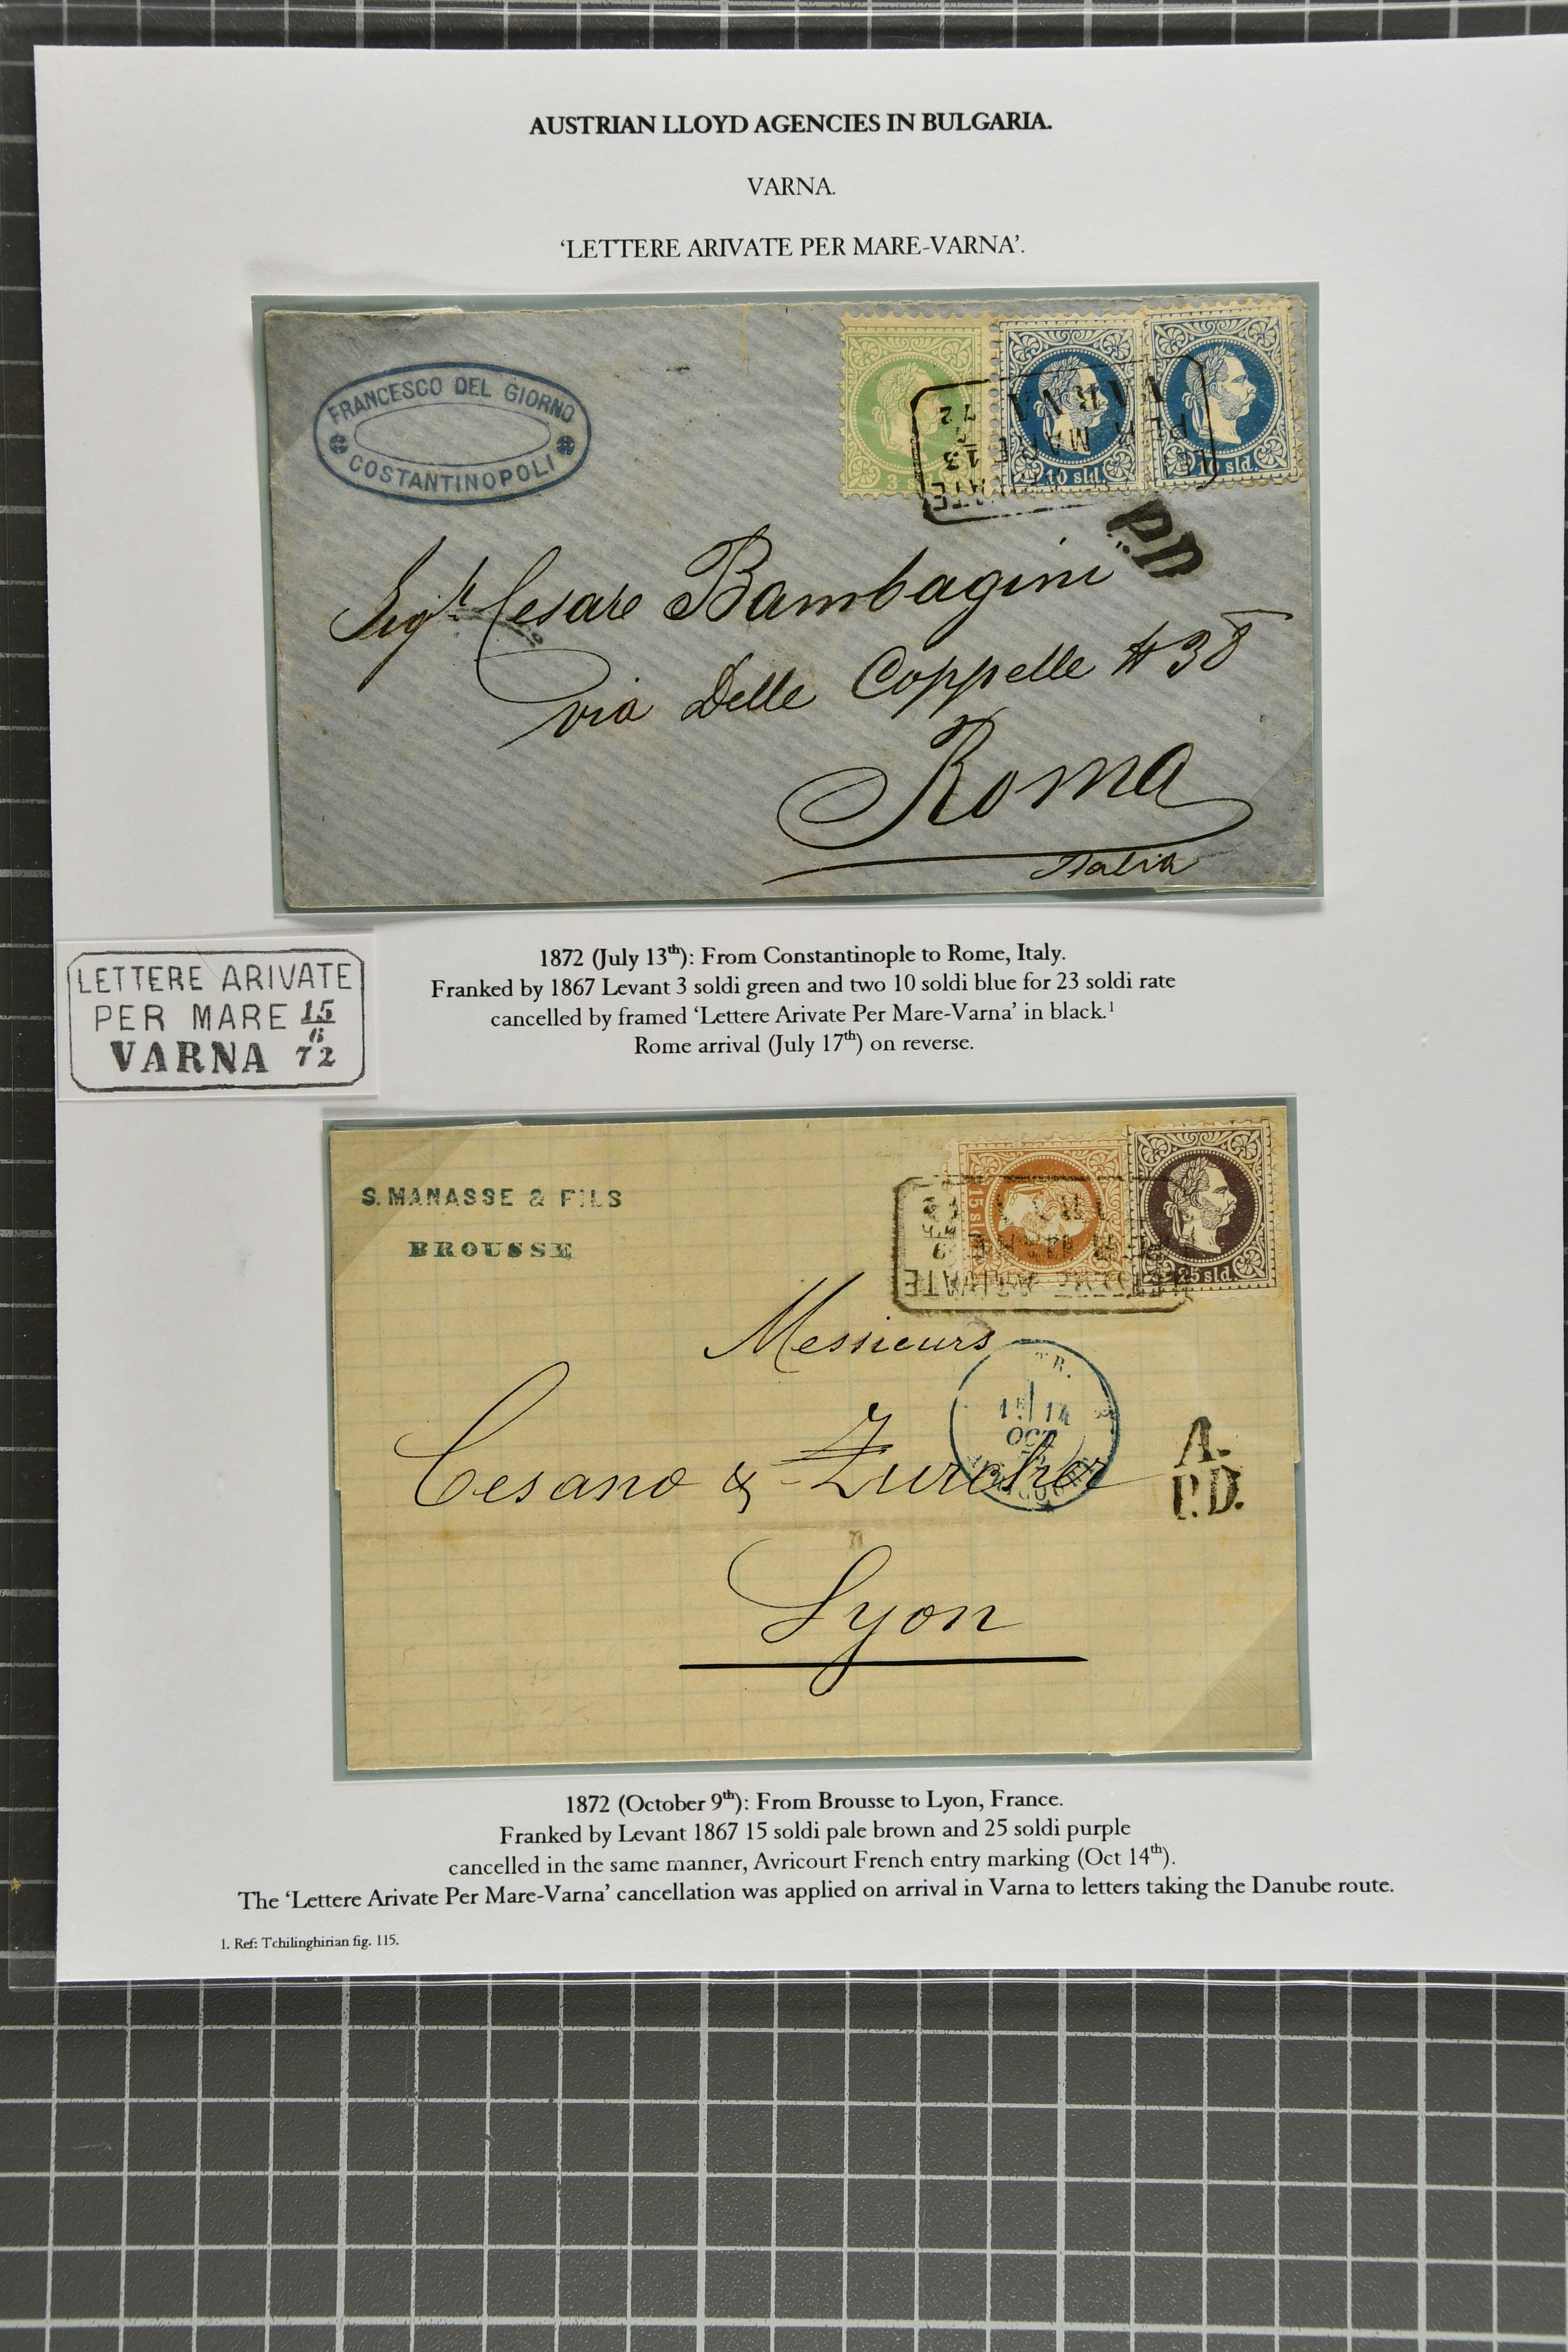 AUSTRIAN LLOYD AGENCIES IN BULGARIA.
VARNA.
‘LETTERE ARIVATE PER MARE-VARNA’.
FRANCESCO DEL GIORNO
COSTANTINOPOLI
VARNA
PER MARE 13
72
3
10 sld.
10 sld.
P.D.
Sigr. Cesare Bambagini
via Delle Coppelle #38
Roma
Italia
LETTERE ARIVATE
PER MARE 15
6
VARNA 72
1872 (July 13th): From Constantinople to Rome, Italy.
Franked by 1867 Levant 3 soldi green and two 10 soldi blue for 23 soldi rate
cancelled by framed ‘Lettere Arivate Per Mare-Varna’ in black.1
Rome arrival (July 17th) on reverse.
S. MANASSE & FILS
BROUSSE
15 sld
25 sld.
LETTERE ARIVATE
Messieurs
Cesano & Zurcher
Lyon
14
OCT
A.
P.D.
1872 (October 9th): From Brousse to Lyon, France.
Franked by Levant 1867 15 soldi pale brown and 25 soldi purple
cancelled in the same manner, Avricourt French entry marking (Oct 14th).
The ‘Lettere Arivate Per Mare-Varna’ cancellation was applied on arrival in Varna to letters taking the Danube route.
1. Ref: Tchilinghirian fig. 115.